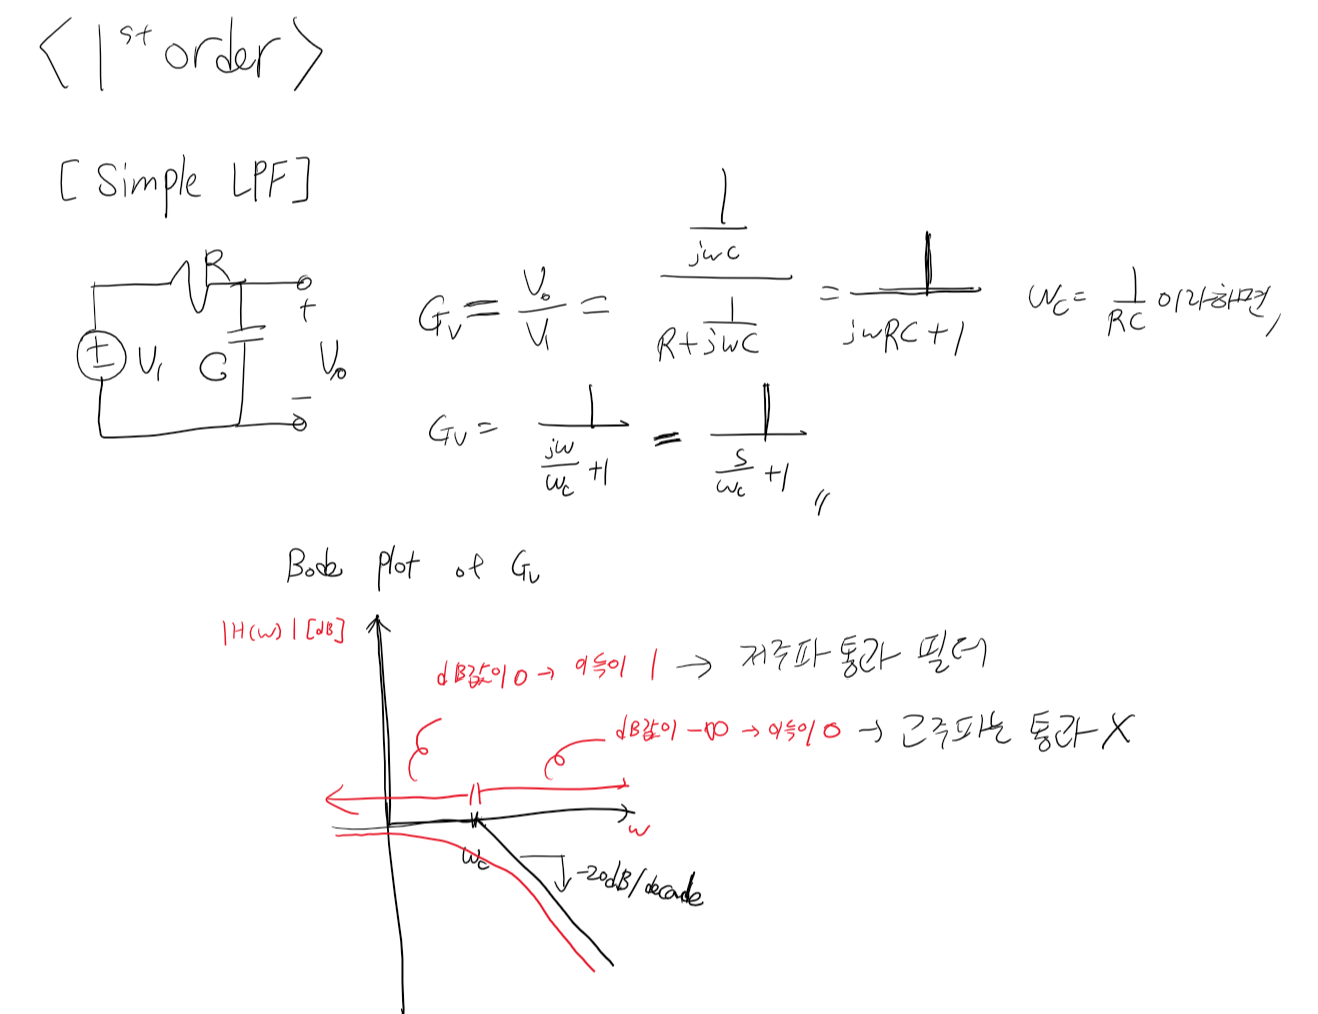 <1st order>
[Simple LPF]
R
+
V₁ C V₀
−
Gᵥ = V₀/V₁ = (1/jωC)/(R+1/jωC) = 1/(jωRC+1) ω_c = 1/RC 이라하면,
Gᵥ = 1/(jω/ω_c +1) = 1/(s/ω_c +1)〃
Bode plot of Gᵥ
|H(ω)| [dB]
dB값이 0 → 이득이 1 → 저주파 통과 필터
dB값이 -∞ → 이득이 0 → 고주파는 통과 X
ω
ω_c
-20dB/decade